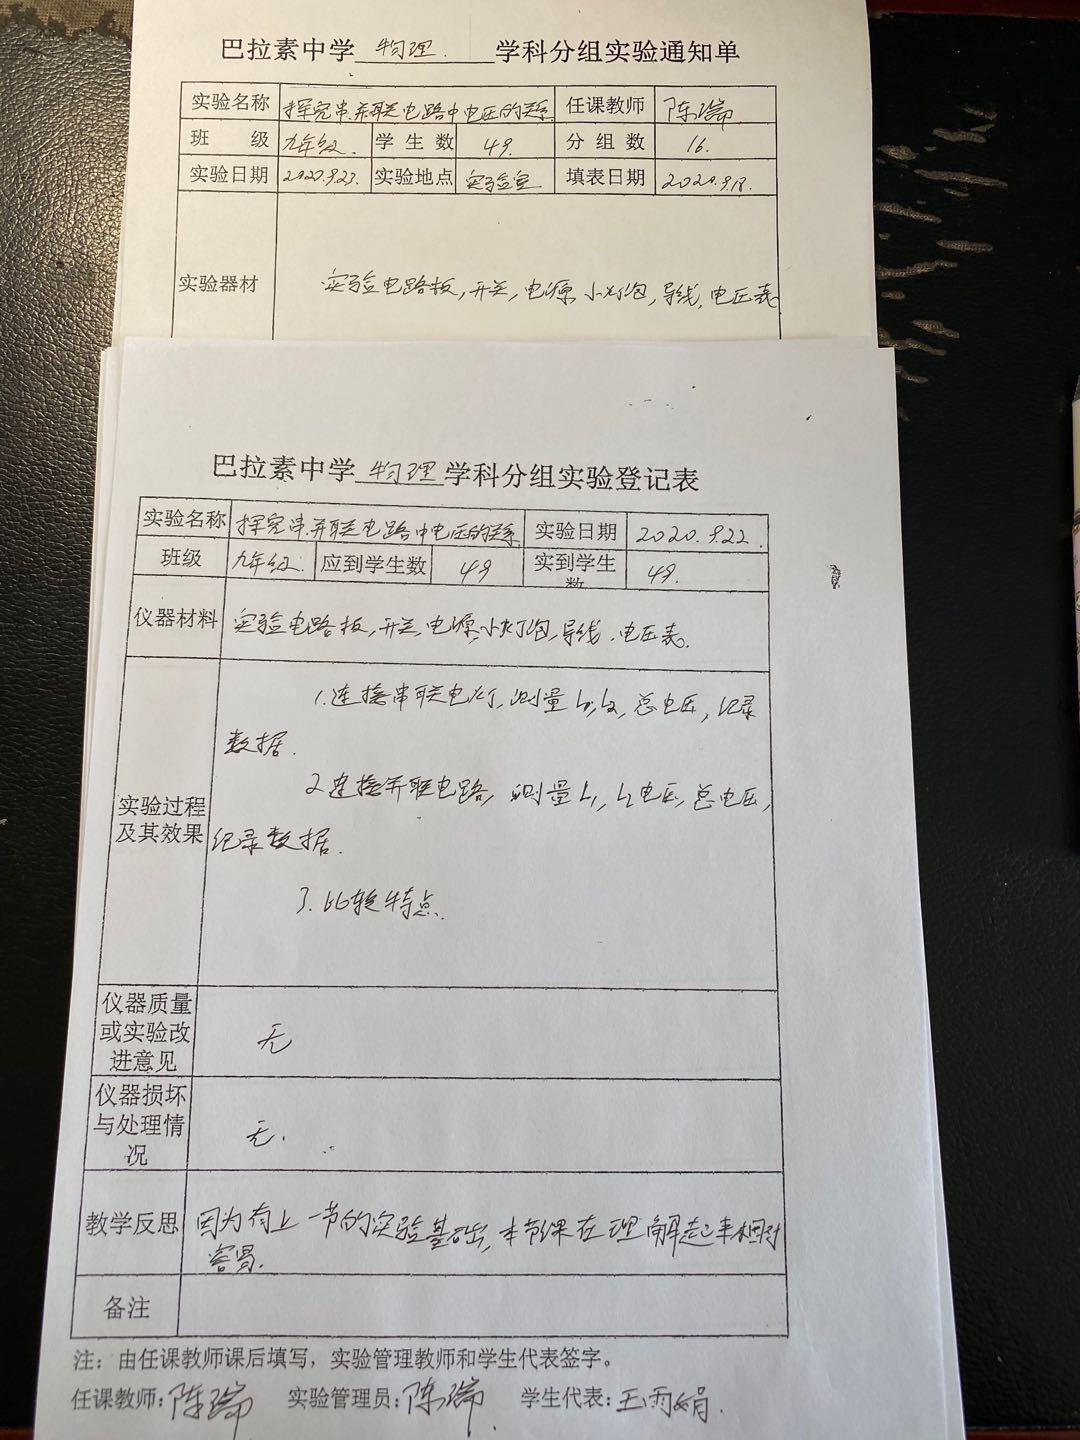 巴拉素中学 物理. 学科分组实验通知单
实验名称 探究串.并联电路中电压的关系 任课教师 陈瑞
班 级 九年级. 学生数 49. 分组数 16.
实验日期 2020.9.23. 实验地点 实验室 填表日期 2020.9.18.
实验器材 实验电路板,开关,电源,小灯泡,导线,电压表
巴拉素中学 物理 学科分组实验登记表
实验名称 探究串.并联电路中电压的关系 实验日期 2020.9.22.
班级 九年级. 应到学生数 49 实到学生数 49.
仪器材料 实验电路板,开关,电源,小灯泡,导线.电压表.
1.连接串联电灯,测量L1,L2,总电压,记录
数据.
2.连接并联电路,测量L1,L2电压,总电压,
实验过程及其效果
记录数据.
3.比较特点.
仪器质量或实验改进意见 无
仪器损坏与处理情况 无.
教学反思 因为有上一节的实验基础,本节课在理解起来相对
容易.
备注
注：由任课教师课后填写，实验管理教师和学生代表签字。
任课教师:陈瑞 实验管理员:陈瑞 学生代表:王雨娟.